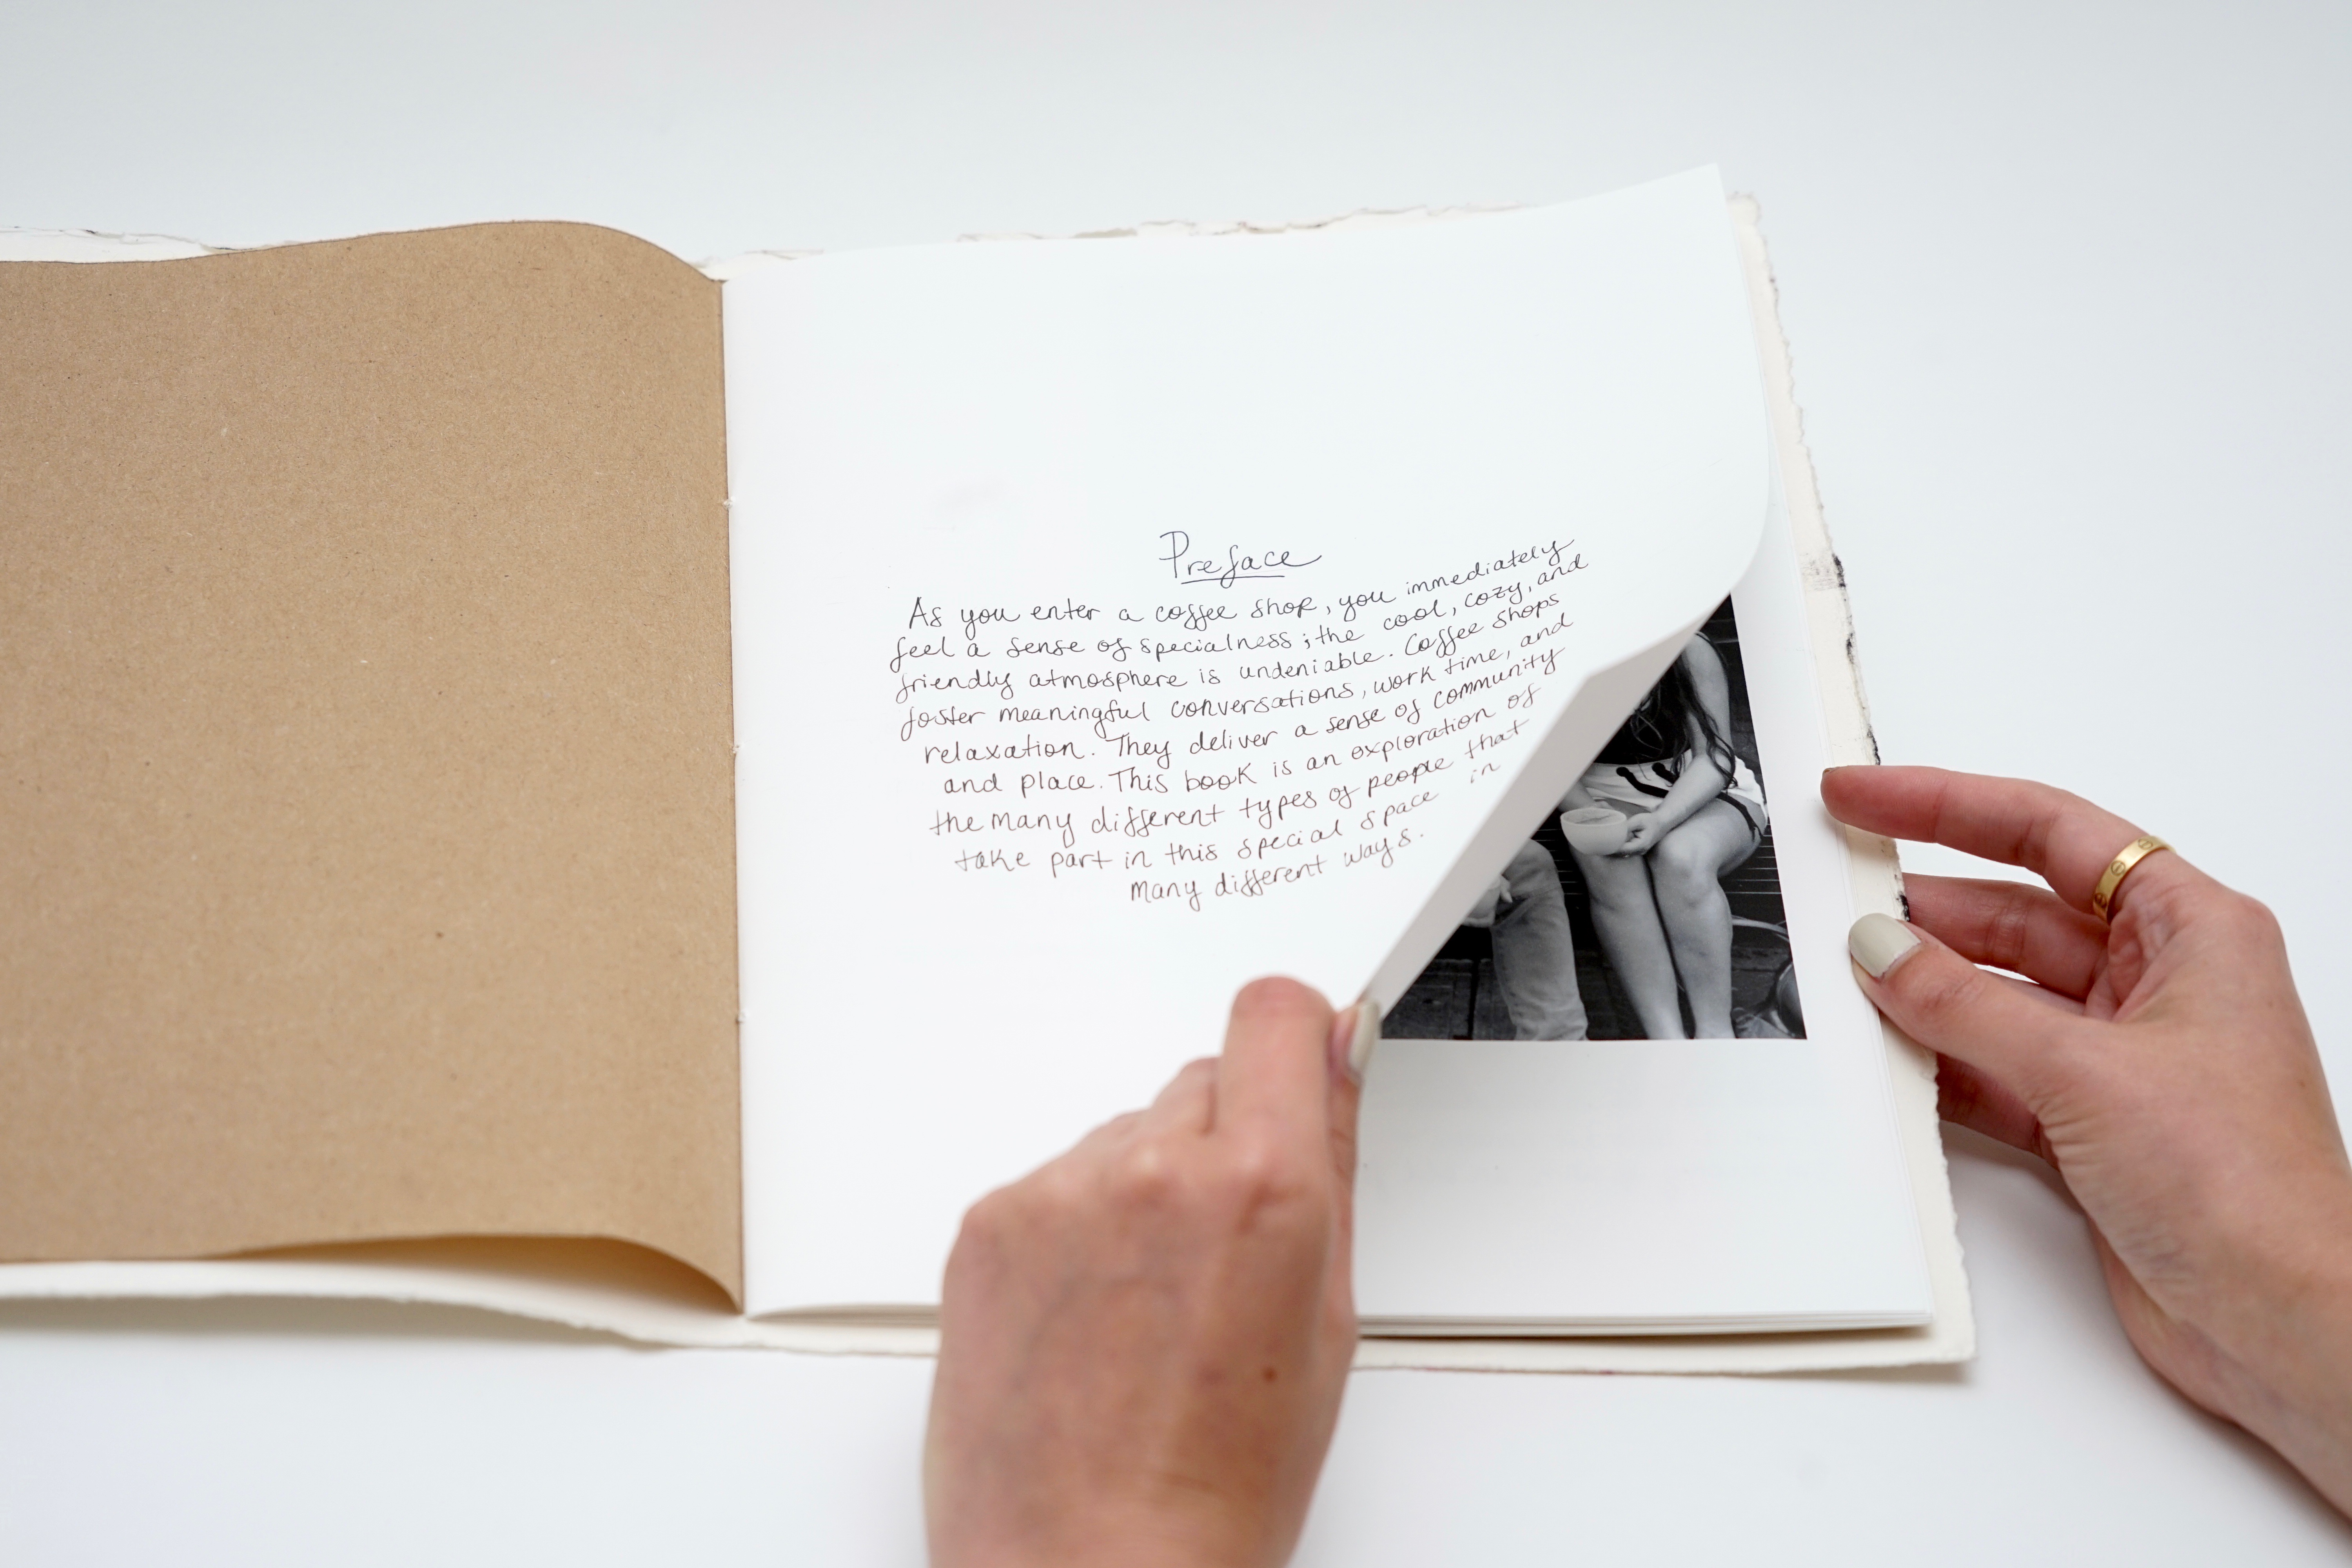 Preface
As you enter a coffee shop, you immediately
feel a sense of specialness; the cool, cozy, and
friendly atmosphere is undeniable. Coffee shops
foster meaningful conversations, work time, and
relaxation. They deliver a sense of community
and place. This book is an exploration of
the many different types of people that
take part in this special space in
many different ways.